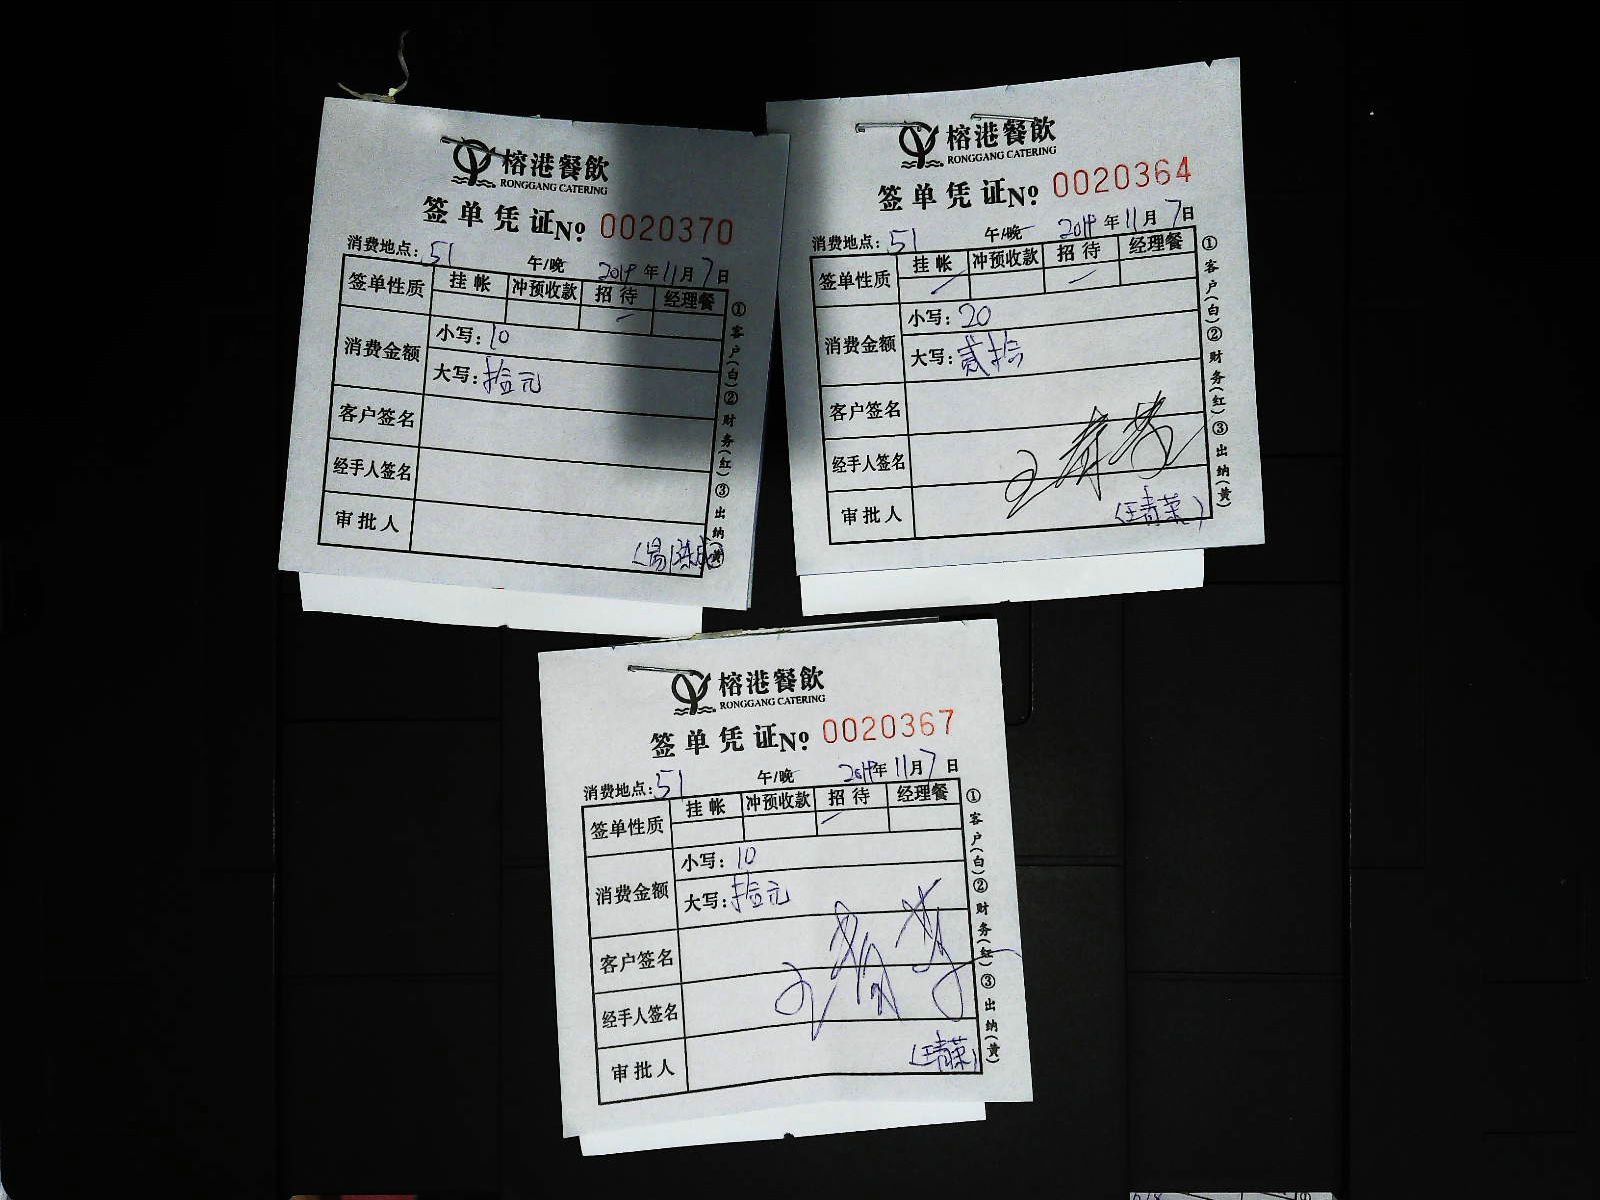 榕港餐飲
RONGGANG CATERING
签单凭证№ 0020370
消费地点：51 午/晚 2019年11月7日
签单性质 挂帐 冲预收款 招待 经理餐
消费金额 小写：10
大写：拾元
客户签名
经手人签名
审批人
①客户(白)②财务(红)③出纳
榕港餐飲
RONGGANG CATERING
签单凭证№ 0020364
消费地点：51 午/晚 2019年11月7日
签单性质 挂帐 冲预收款 招待 经理餐
消费金额 小写：20
大写：贰拾
客户签名
经手人签名
审批人 (王青荣)
①客户(白)②财务(红)③出纳(黄)
榕港餐飲
RONGGANG CATERING
签单凭证№ 0020367
消费地点：51 午/晚 2019年11月7日
签单性质 挂帐 冲预收款 招待 经理餐
消费金额 小写：10
大写：拾元
客户签名
经手人签名
审批人 (王青荣)
①客户(白)②财务(红)③出纳(黄)